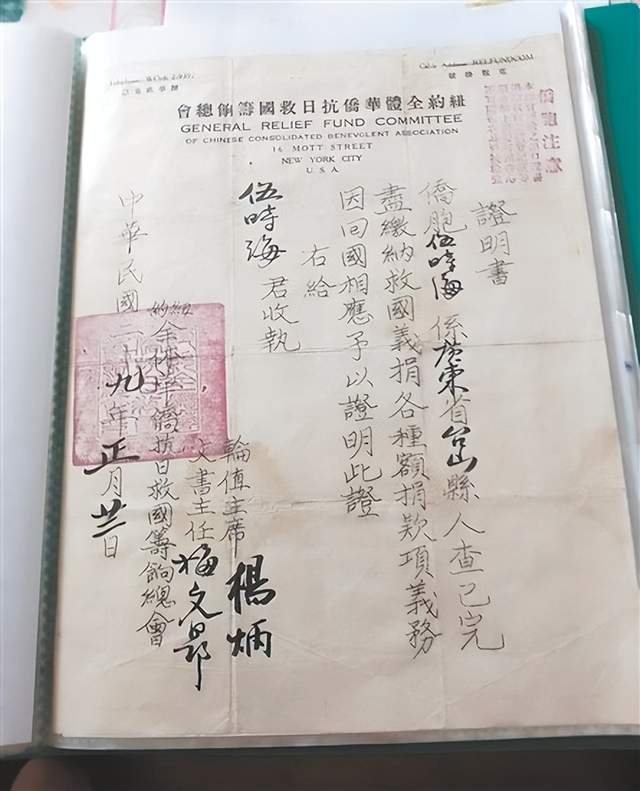 Cable Address: RELFUNDCOM
電報掛號
紐約全體華僑抗日救國籌餉總會
GENERAL RELIEF FUND COMMITTEE
OF CHINESE CONSOLIDATED BENEVOLENT ASSOCIATION
16 MOTT STREET
NEW YORK CITY
U.S.A.
僑胞注意
證明書
僑胞伍時海係廣東省台山縣人查已完
盡繳納救國義捐各種額捐欵項義務
因回國相應予以證明此證
右給
伍時海君收執
輪值主席 楊炳
文書主任 梅文
紐約全體華僑抗日救國籌餉總會
中華民國二十九年正月日